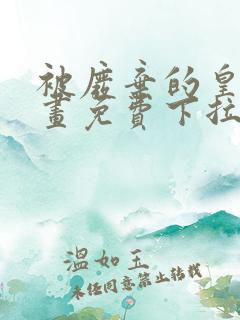 被废弃的皇
畫免費下拉
溫如玉
未任同意禁止转载